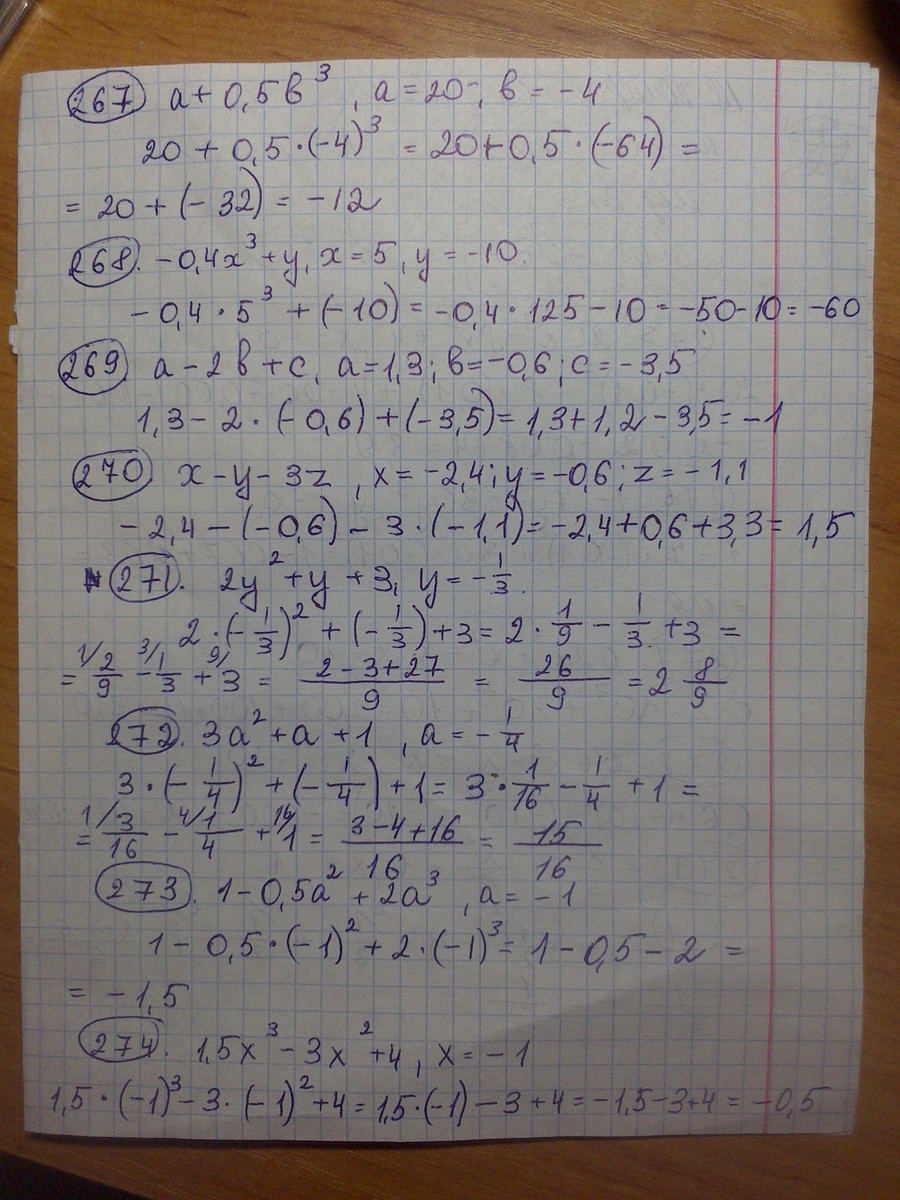 267 a + 0,5в³, a = 20; в = -4
20 + 0,5·(-4)³ = 20 + 0,5·(-64) =
= 20 + (-32) = -12
268. -0,4x³ + y, x = 5, y = -10.
-0,4·5³ + (-10) = -0,4·125 - 10 = -50 - 10 = -60
269. a - 2в + c, a = 1,3; в = -0,6; c = -3,5
1,3 - 2·(-0,6) + (-3,5) = 1,3 + 1,2 - 3,5 = -1
270 x - y - 3z, x = -2,4; y = -0,6; z = -1,1
-2,4 - (-0,6) - 3·(-1,1) = -2,4 + 0,6 + 3,3 = 1,5
271. 2y² + y + 3, y = -1/3.
2·(-1/3)² + (-1/3) + 3 = 2·1/9 - 1/3 + 3 =
= 1/ 2/9 - 3/ 1/3 + 9/ 3 = (2-3+27)/9 = 26/9 = 2 8/9
272. 3a² + a + 1, a = -1/4
3·(-1/4)² + (-1/4) + 1 = 3·1/16 - 1/4 + 1 =
= 1/ 3/16 - 4/ 1/4 + 16/ 1 = (3-4+16)/16 = 15/16
273. 1 - 0,5a² + 2a³, a = -1
1 - 0,5·(-1)² + 2·(-1)³ = 1 - 0,5 - 2 =
= -1,5
274. 1,5x³ - 3x² + 4, x = -1
1,5·(-1)³ - 3·(-1)² + 4 = 1,5·(-1) - 3 + 4 = -1,5 - 3 + 4 = -0,5